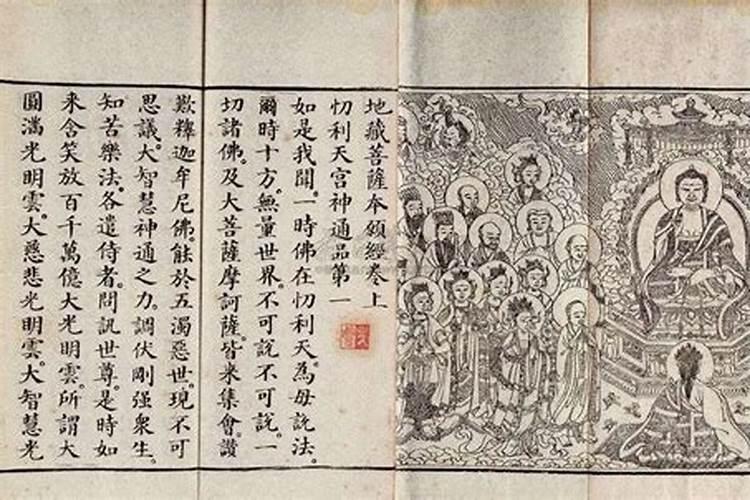 地藏菩薩本願經卷上
忉利天宮神通品第一
如是我聞。一時佛在忉利天。為母說法。
爾時十方。無量世界。不可說不可說。一
切諸佛。及大菩薩摩訶薩。皆來集會。讚
歎釋迦牟尼佛。能於五濁惡世。現不可
思議。大智慧神通之力。調伏剛强衆生。
知苦樂法。各遣侍者。問訊世尊。是時如
來含笑放百千萬億大光明雲。所謂大
圓滿光明雲。大慈悲光明雲。大智慧光